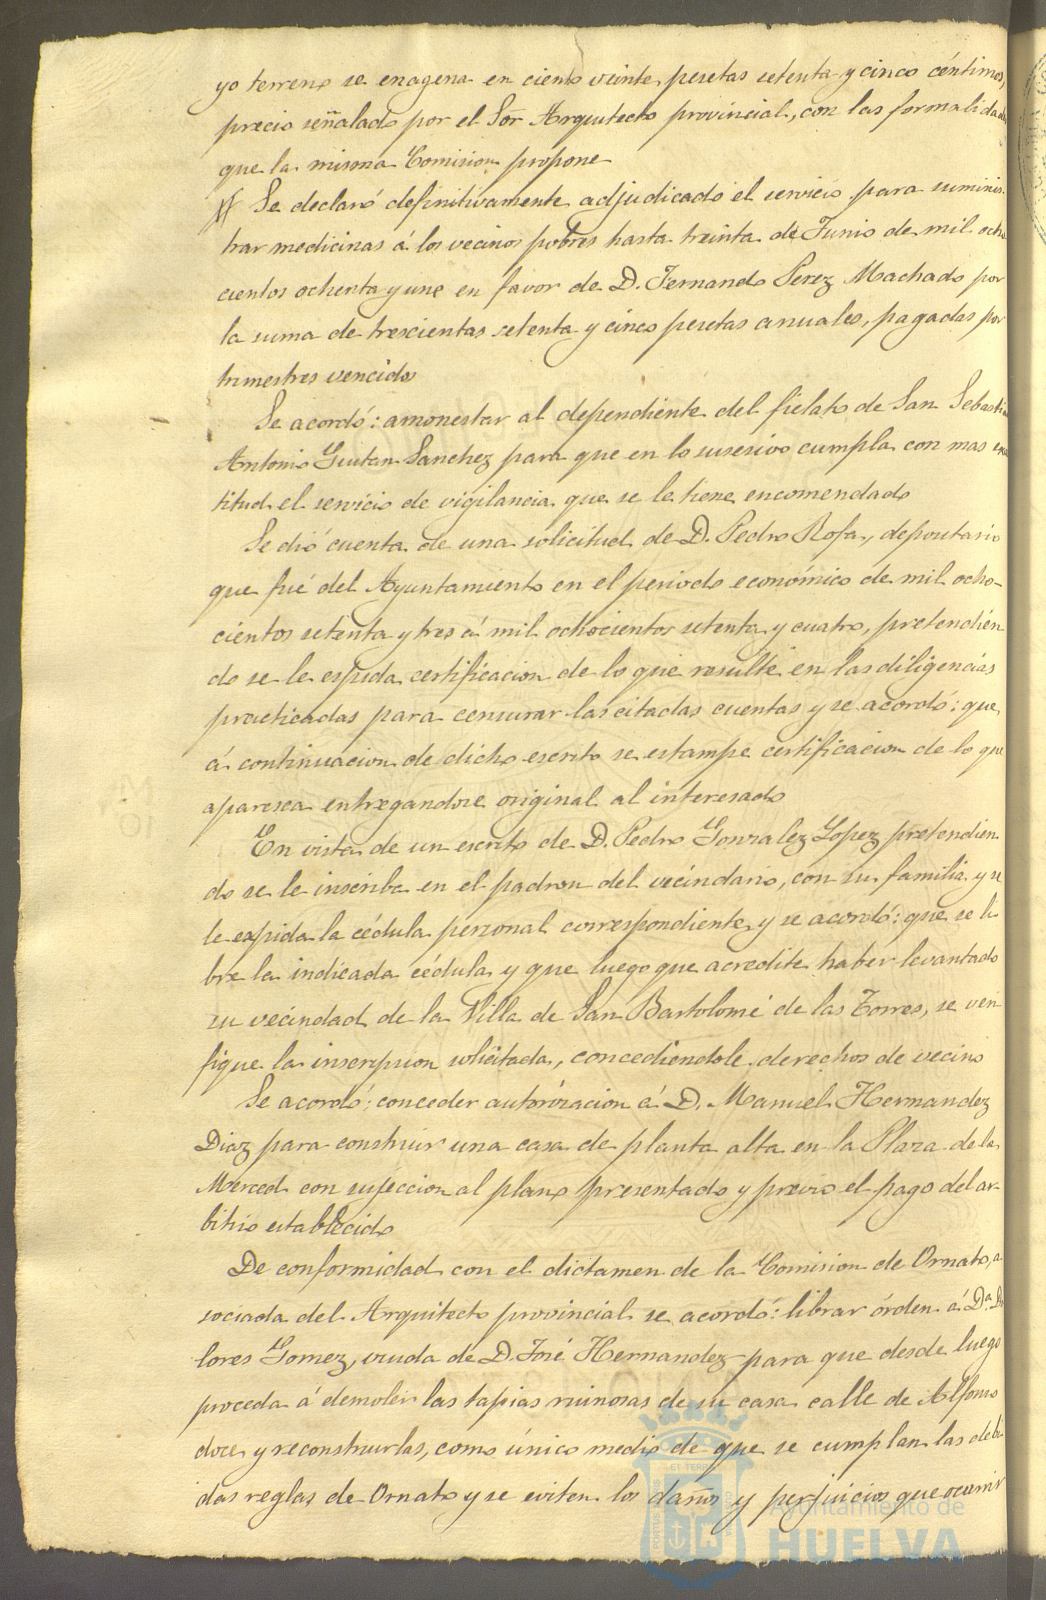 yo terreno se enagena en ciento veinte pesetas setenta y cinco céntimos,
precio señalado por el Sor Arquitecto provincial, con las formalidad
que la misma Comision propone
Se declaró definitivamente adjudicado el servicio para suminis-
trar medicinas á los vecinos pobres hasta treinta de Junio de mil ocho
cientos ochenta y uno en favor de D. Fernando Perez Machado por
la suma de trescientas setenta y cinco pesetas anuales, pagadas por
trimestres vencido
Se acordó: amonestar al dependiente del fielato de San Sebasti
Antonio Guitan Sanchez para que en lo sucesivo cumpla con mas exa
titud el servicio de vigilancia que se le tiene encomendado
Se dió cuenta de una solicitud de D. Pedro Rofa, depositario
que fué del Ayuntamiento en el periodo económico de mil ocho-
cientos setenta y tres á mil ochocientos setenta y cuatro, pretendién
do se le espida certificacion de lo que resulte en las diligencias
practicadas para censurar las citadas cuentas y se acordó: que
á continuacion de dicho escrito se estampe certificacion de lo que
aparesca entregandose original al interesado
En vista de un escrito de D. Pedro Gonzalez Lopez pretendien
do se le inscriba en el padron del vecindario, con su familia y se
le expida la cédula personal correspondiente y se acordó: que se li
bre la indicada cédula y que luego que acredite haber levantado
su vecindad de la Villa de San Bartolomé de las Torres, se veri
fique la inscripcion solicitada, concediendole derechos de vecino
Se acordó: conceder autorizacion á D. Manuel Hernandez
Diaz para construir una casa de planta alta en la Plaza de la
Merced con sujeccion al plano presentado y previo el pago del ar-
bitrio establecido
De conformidad con el dictamen de la Comision de Ornato, a
sociada del Arquitecto provincial se acordó: librar órden á Da. Do
lores Gomez, viuda de D. José Hernandez para que desde luego
proceda á demoler las tapias ruinosas de su casa calle de Alfonso
doce y reconstruirlas, como único medio de que se cumplan las debi
das reglas de Ornato y se eviten los daños y perjuicios que ocurrir
Ayuntamiento de
HUELVA